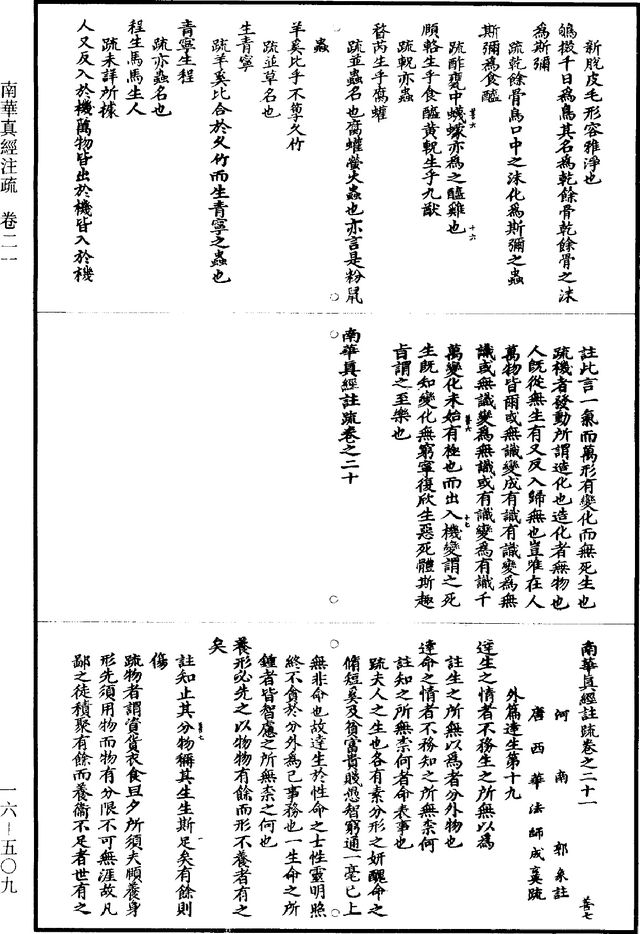 新脫皮毛形容雅淨也
鴝掇千日爲鳥其名爲乾餘骨乾餘骨之沫
爲斯彌
疏乾餘骨鳥口中之沫化爲斯彌之蟲
斯彌爲食醯
疏酢甕中蠛蠓亦爲之醯雞也
頤輅生乎食醯黃軦生乎九猷
疏軦亦蟲
瞀芮生乎腐蠸
疏並蟲名也腐蠸螢火蟲也亦言是粉鼠
蟲
羊奚比乎不箰久竹
疏並草名也
生青寧
疏羊奚比合於久竹而生青寧之蟲也
青寧生程
疏亦蟲名也
程生馬馬生人
疏未詳所據
人又反入於機萬物皆出於機皆入於機
善六
十六
註此言一氣而萬形有變化而無死生也
疏機者發動所謂造化也造化者無物也
人既從無生有又反入歸無也豈唯在人
萬物皆爾或無識變成有識有識變爲無
識或無識變爲無識或有識變爲有識千
萬變化未始有極也而出入機變謂之死
生既知變化無窮寧復欣生惡死體斯趣
旨謂之至樂也
善六
十七
南華真經註疏卷之二十
南華真經註疏卷之二十一
善七
河南郭象註
唐西華法師成玄英疏
外篇達生第十九
達生之情者不務生之所無以爲
註生之所無以爲者分外物也
達命之情者不務知之所無奈何
註知之所無奈何者命表事也
疏夫人之生也各有素分形之妍醜命之
脩短及貧富貴賤愚智窮通一毫已上
無非命也故達生於性命之士性靈明照
終不貪於分外爲己事務也一生命之所
鍾者皆智慮之所無奈之何也
養形必先之以物物有餘而形不養者有之
矣
註知止其分物稱其生生斯足矣有餘則
傷
疏物者謂資貨衣食旦夕所須夫願養身
形先須用物而物有分限不可無涯故凡
鄙之徒積聚有餘而養衛不足者世有之
善七
一
南華真經注疏 卷二一
一六—五〇九